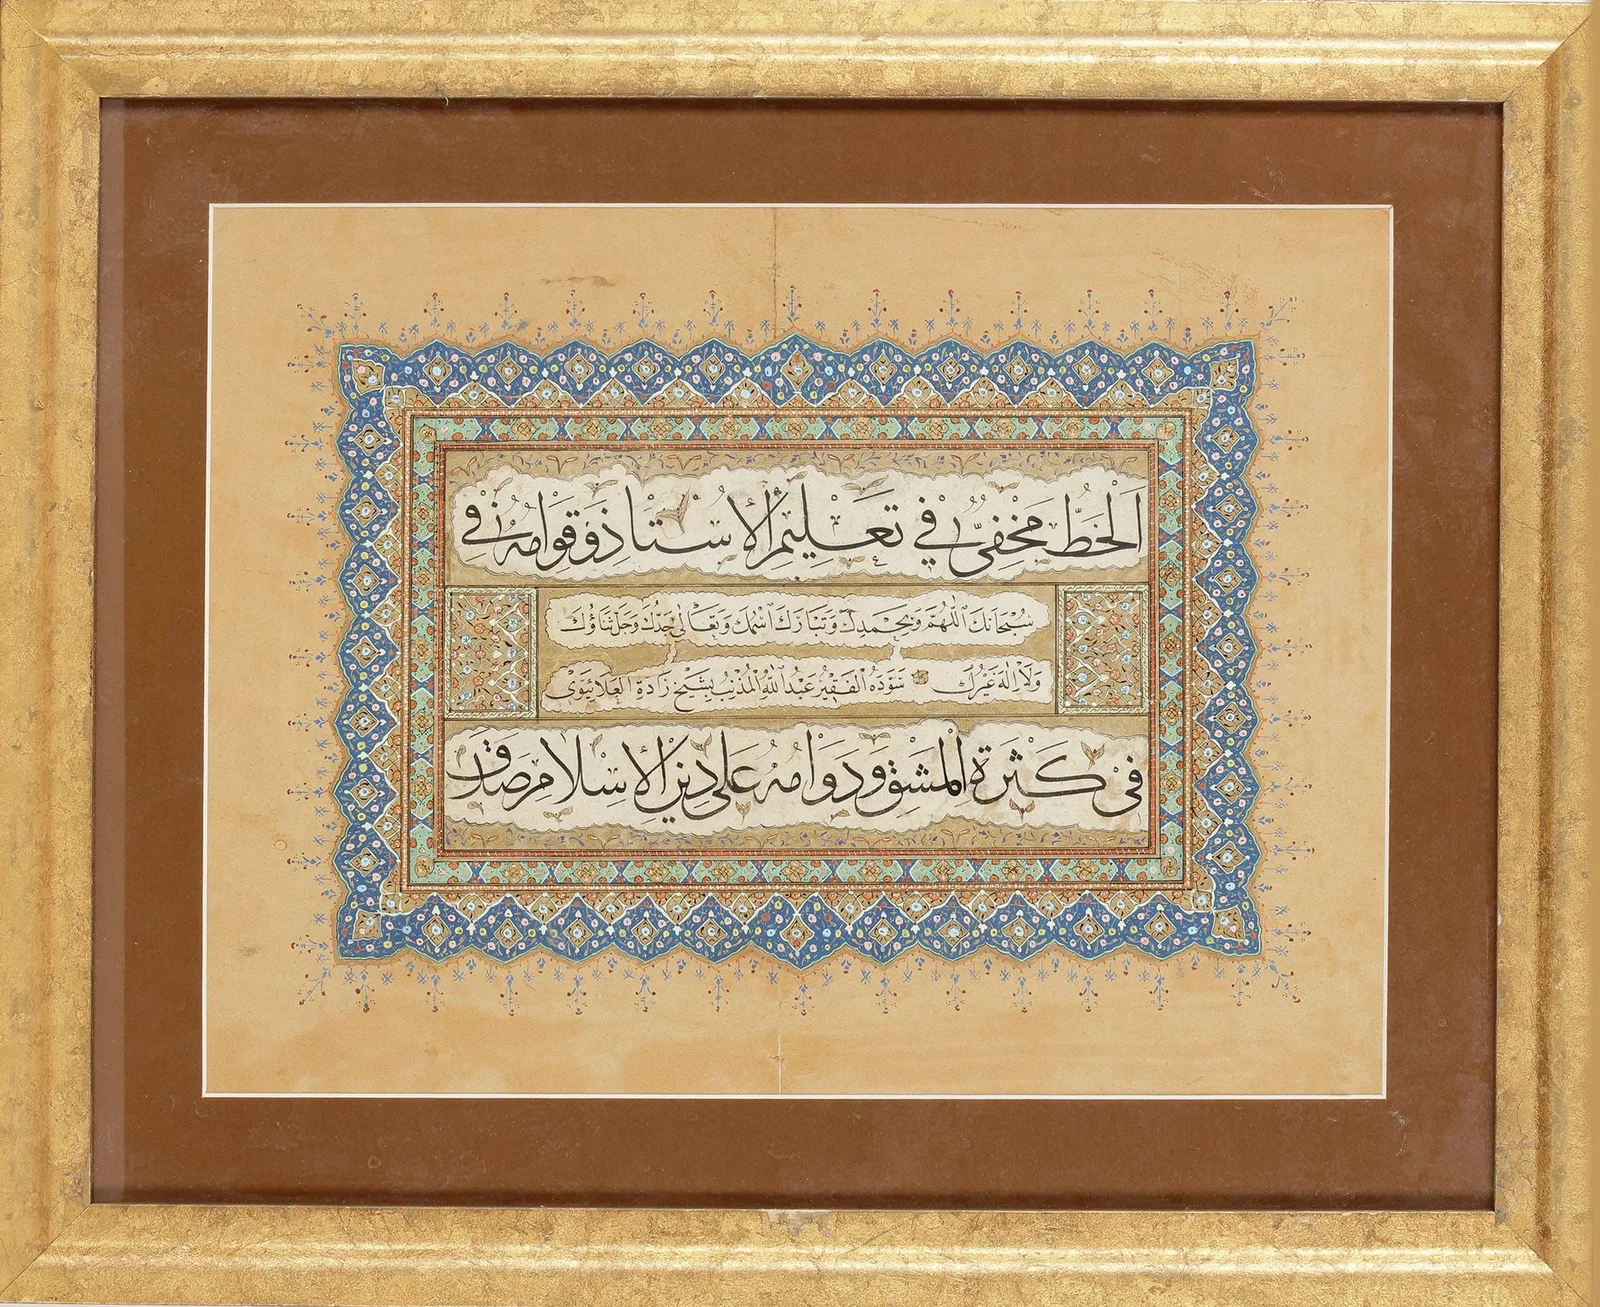 اَلْخَطُّ مَخْفِيٌّ فِي تَعْلِيمِ الْأُسْتَاذِ وَقِوَامُهُ فِي
سُبْحَانَكَ اللّٰهُمَّ وَبِحَمْدِكَ وَتَبَارَكَ اسْمُكَ وَتَعَالٰى جَدُّكَ وَجَلَّ ثَنَاؤُكَ
وَلَا اِلٰهَ غَيْرُكَ سَوَّدَهُ الْفَقِيرُ عَبْدُ اللّٰهِ الْمُذْنِبُ بِشَيْخ زَادَةِ الْعَلَائِيَوِيّ
فِي كَثْرَةِ الْمَشْقِ وَدَوَامُهُ عَلٰى دِينِ الْإِسْلَامِ صَدَقَ